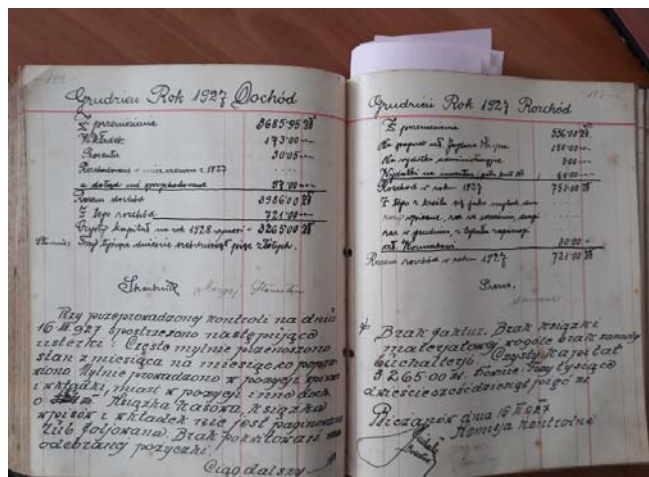 Grudzień Rok 1927 Dochód
Z przeniesienia 3685.95 zł
Wkładek 173.00
Procentu 30.05
w 1927
a dotąd nie 97.00
Razem dochód 3986.00 zł
Z tego rozchód 721.00
Czysty kapitał na rok 1928 wynosi 3265.00 zł
Słownie: Trzy tysiące dwieście sześćdziesiąt pięć złotych.
Skarbnik
Przy przeprowadzonej kontroli na dniu
16 927 spostrzeżono następujące
usterki: Często mylnie przenoszono
stan z miesiąca na miesiąc
Mylnie prowadzono w pozycji
i wkładki, miast w pozycji inne doch.
Książka Kasowa, Książka
wpisów i wkładek nie jest paginowana
lub foljowana. Brak pokwitowań
odebranej pożyczki.
Ciąg dalszy
Grudzień Rok 1927 Rozchód
Z przeniesienia 556.00 zł
Na pogrzeb 150.00
Na wydatki administracyjne
Wydatki na 60.00
Rozchód w roku 1927 751.00 zł
Z tego się jako mylnie
razy wpisane, raz we wrześniu, drugi
raz w grudniu, z tytułu
30.00
Razem rozchód w roku 1927 721.00 zł
Prezes,
Brak faktur. Brak książki
materjałowej, wogóle brak
buchalterji. Czysty Kapitał
3265.00 zł. Trzy tysiące
dwieście sześćdziesiąt pięć zł
Bieżanów dnia 16 927
Komisja Kontrolna